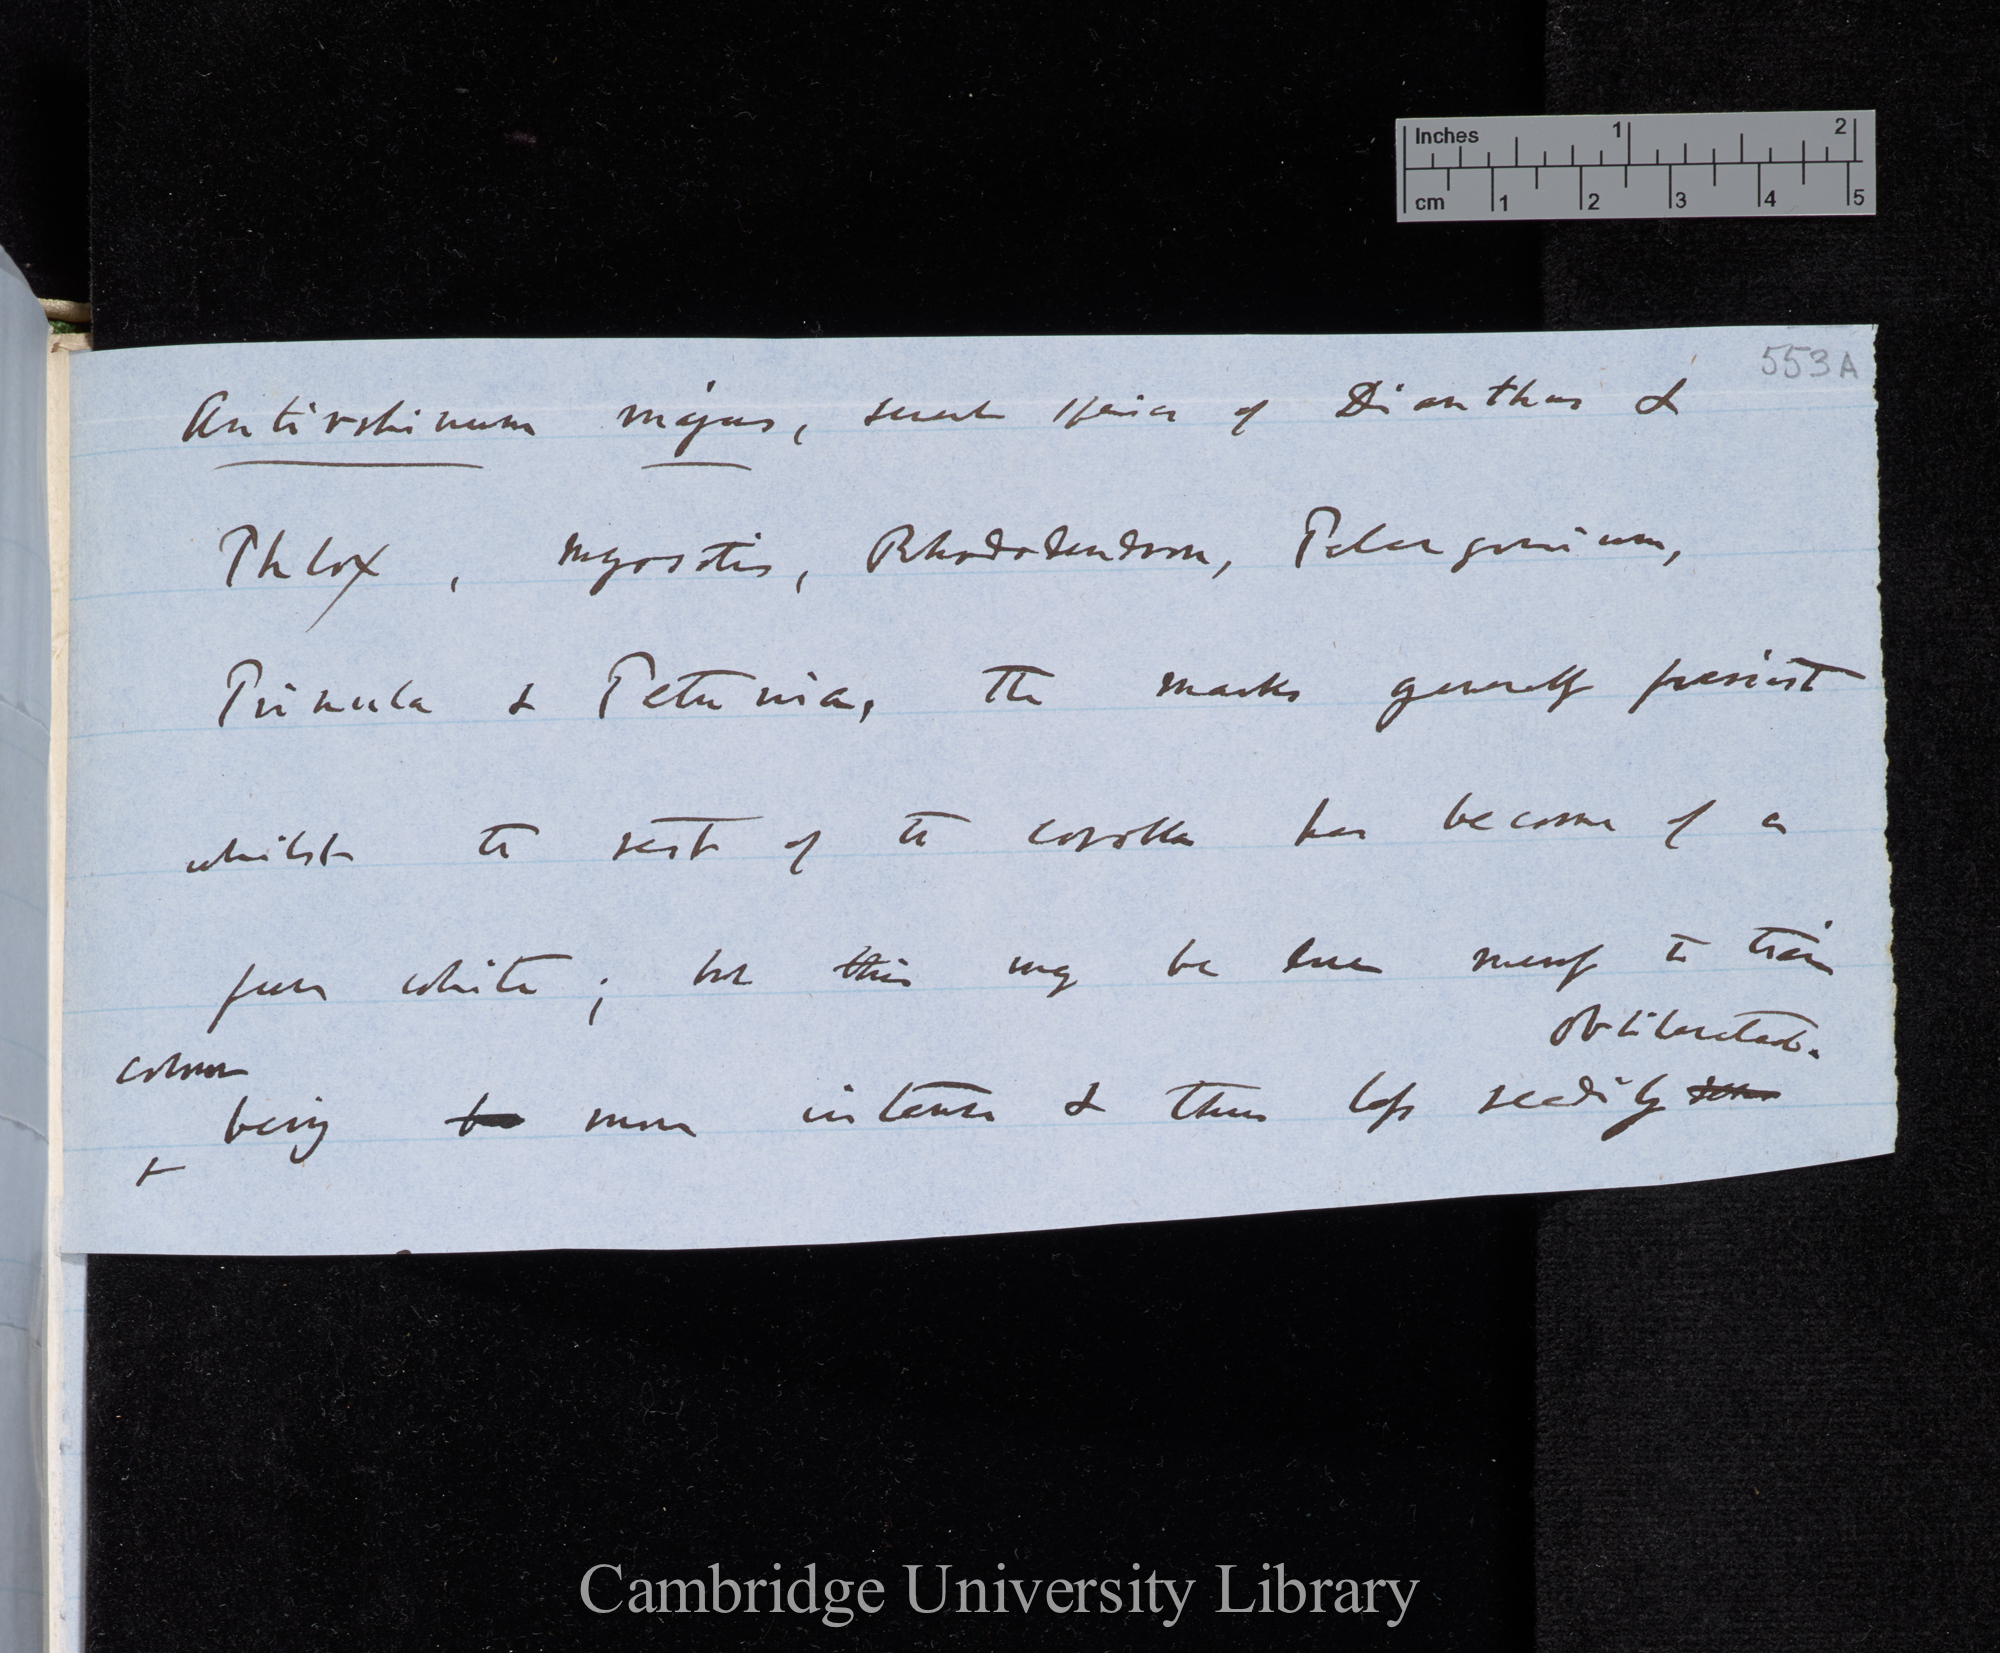 553A
Antirrhinum majus, several species of Dianthus &
Phlox, Myosotis, Rhododendron, Pelargonium,
Primula & Petunia, the marks generally persist
whilst the rest of the corolla has become of a
pure white; but this may be due merely to their
colour obliterated.
being more intense & thus less readily
Inches 1 2
cm 1 2 3 4 5
Cambridge University Library